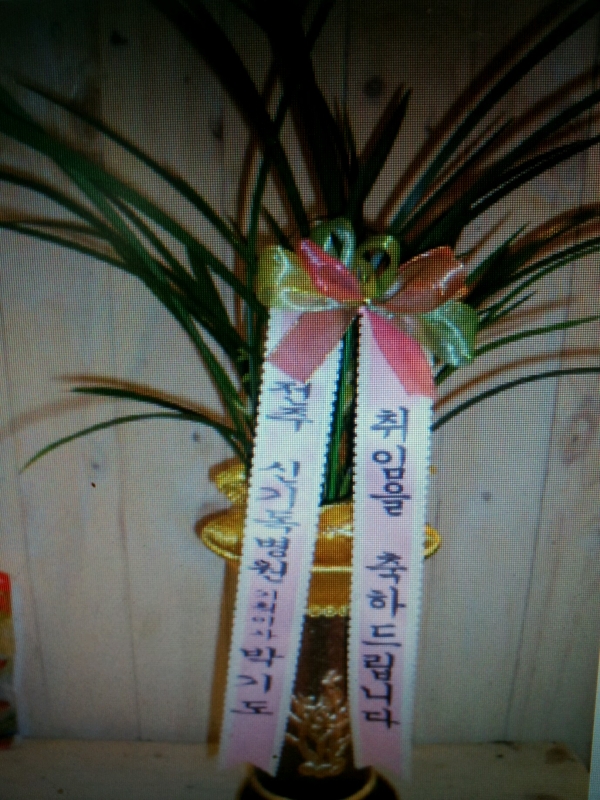 전주 신기독병원 기획이사 박기도
취임을 축하드립니다